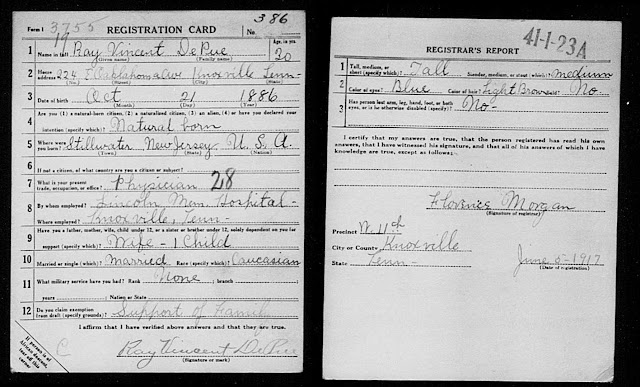 386
Form 1 3755 REGISTRATION CARD No.
17
1 Name in full Ray Vincent De Pue Age, in yrs. 30
(Given name) (Family name)
2 Home address 224 E. Oaklahoma Ave Knoxville Tenn-
(No.) (Street) (City) (State)
3 Date of birth Oct 21 1886
(Month) (Day) (Year)
4 Are you (1) a natural-born citizen, (2) a naturalized citizen, (3) an alien, (4) or have you declared your
intention (specify which)? Natural born
5 Where were you born? Stillwater New Jersey. U. S. A.
(Town) (State) (Nation)
6 If not a citizen, of what country are you a citizen or subject?
7 What is your present trade, occupation, or office? Physician 28
8 By whom employed? Lincoln Mem. Hospital-
Where employed? Knoxville, Tenn-
9 Have you a father, mother, wife, child under 12, or a sister or brother under 12, solely dependent on you for
support (specify which)? Wife - 1 Child
10 Married or single (which)? Married Race (specify which)? Caucasian
11 What military service have you had? Rank None ; branch
years Nation or State
12 Do you claim exemption from draft (specify grounds)? Support of Family
I affirm that I have verified above answers and that they are true.
C Ray Vincent De Pue
(Signature or mark)
If person is of African descent, tear off this corner
41-1-23A
REGISTRAR'S REPORT
1 Tall, medium, or short (specify which)? Tall Slender, medium, or stout (which)? medium
2 Color of eyes? Blue Color of hair? Light Brown Bald? No
3 Has person lost arm, leg, hand, foot, or both
eyes, or is he otherwise disabled (specify)? No-
I certify that my answers are true, that the person registered has read his own
answers, that I have witnessed his signature, and that all of his answers of which I have
knowledge are true, except as follows:
Florence Morgan
(Signature of registrar)
Precinct W. 11th
City or County Knoxville
State Tenn- June 5-1917
(Date of registration)